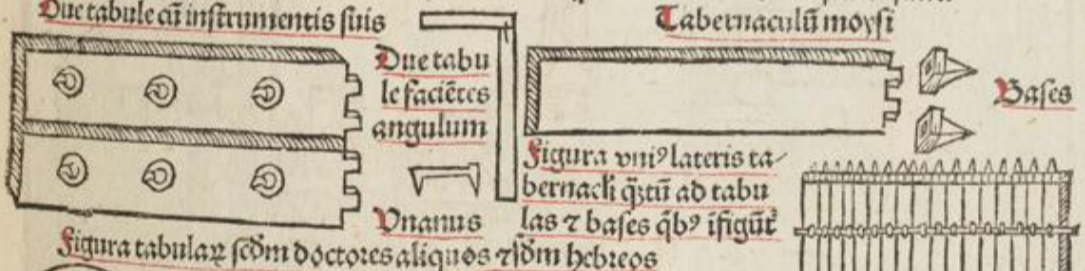 Due tabule cū instrumentis suis
Tabernaculū moysi
Due tabu
le faciētes
angulum
Bases
Vnanus
Figura vniꝰ lateris ta⸗
bernacli q̄ꝫtū ad tabu
las ⁊ bases q̄bꝰ īfigūt̄
Figura tabulaꝝ scd̄m doctores aliquos ⁊ scd̄m hebreos